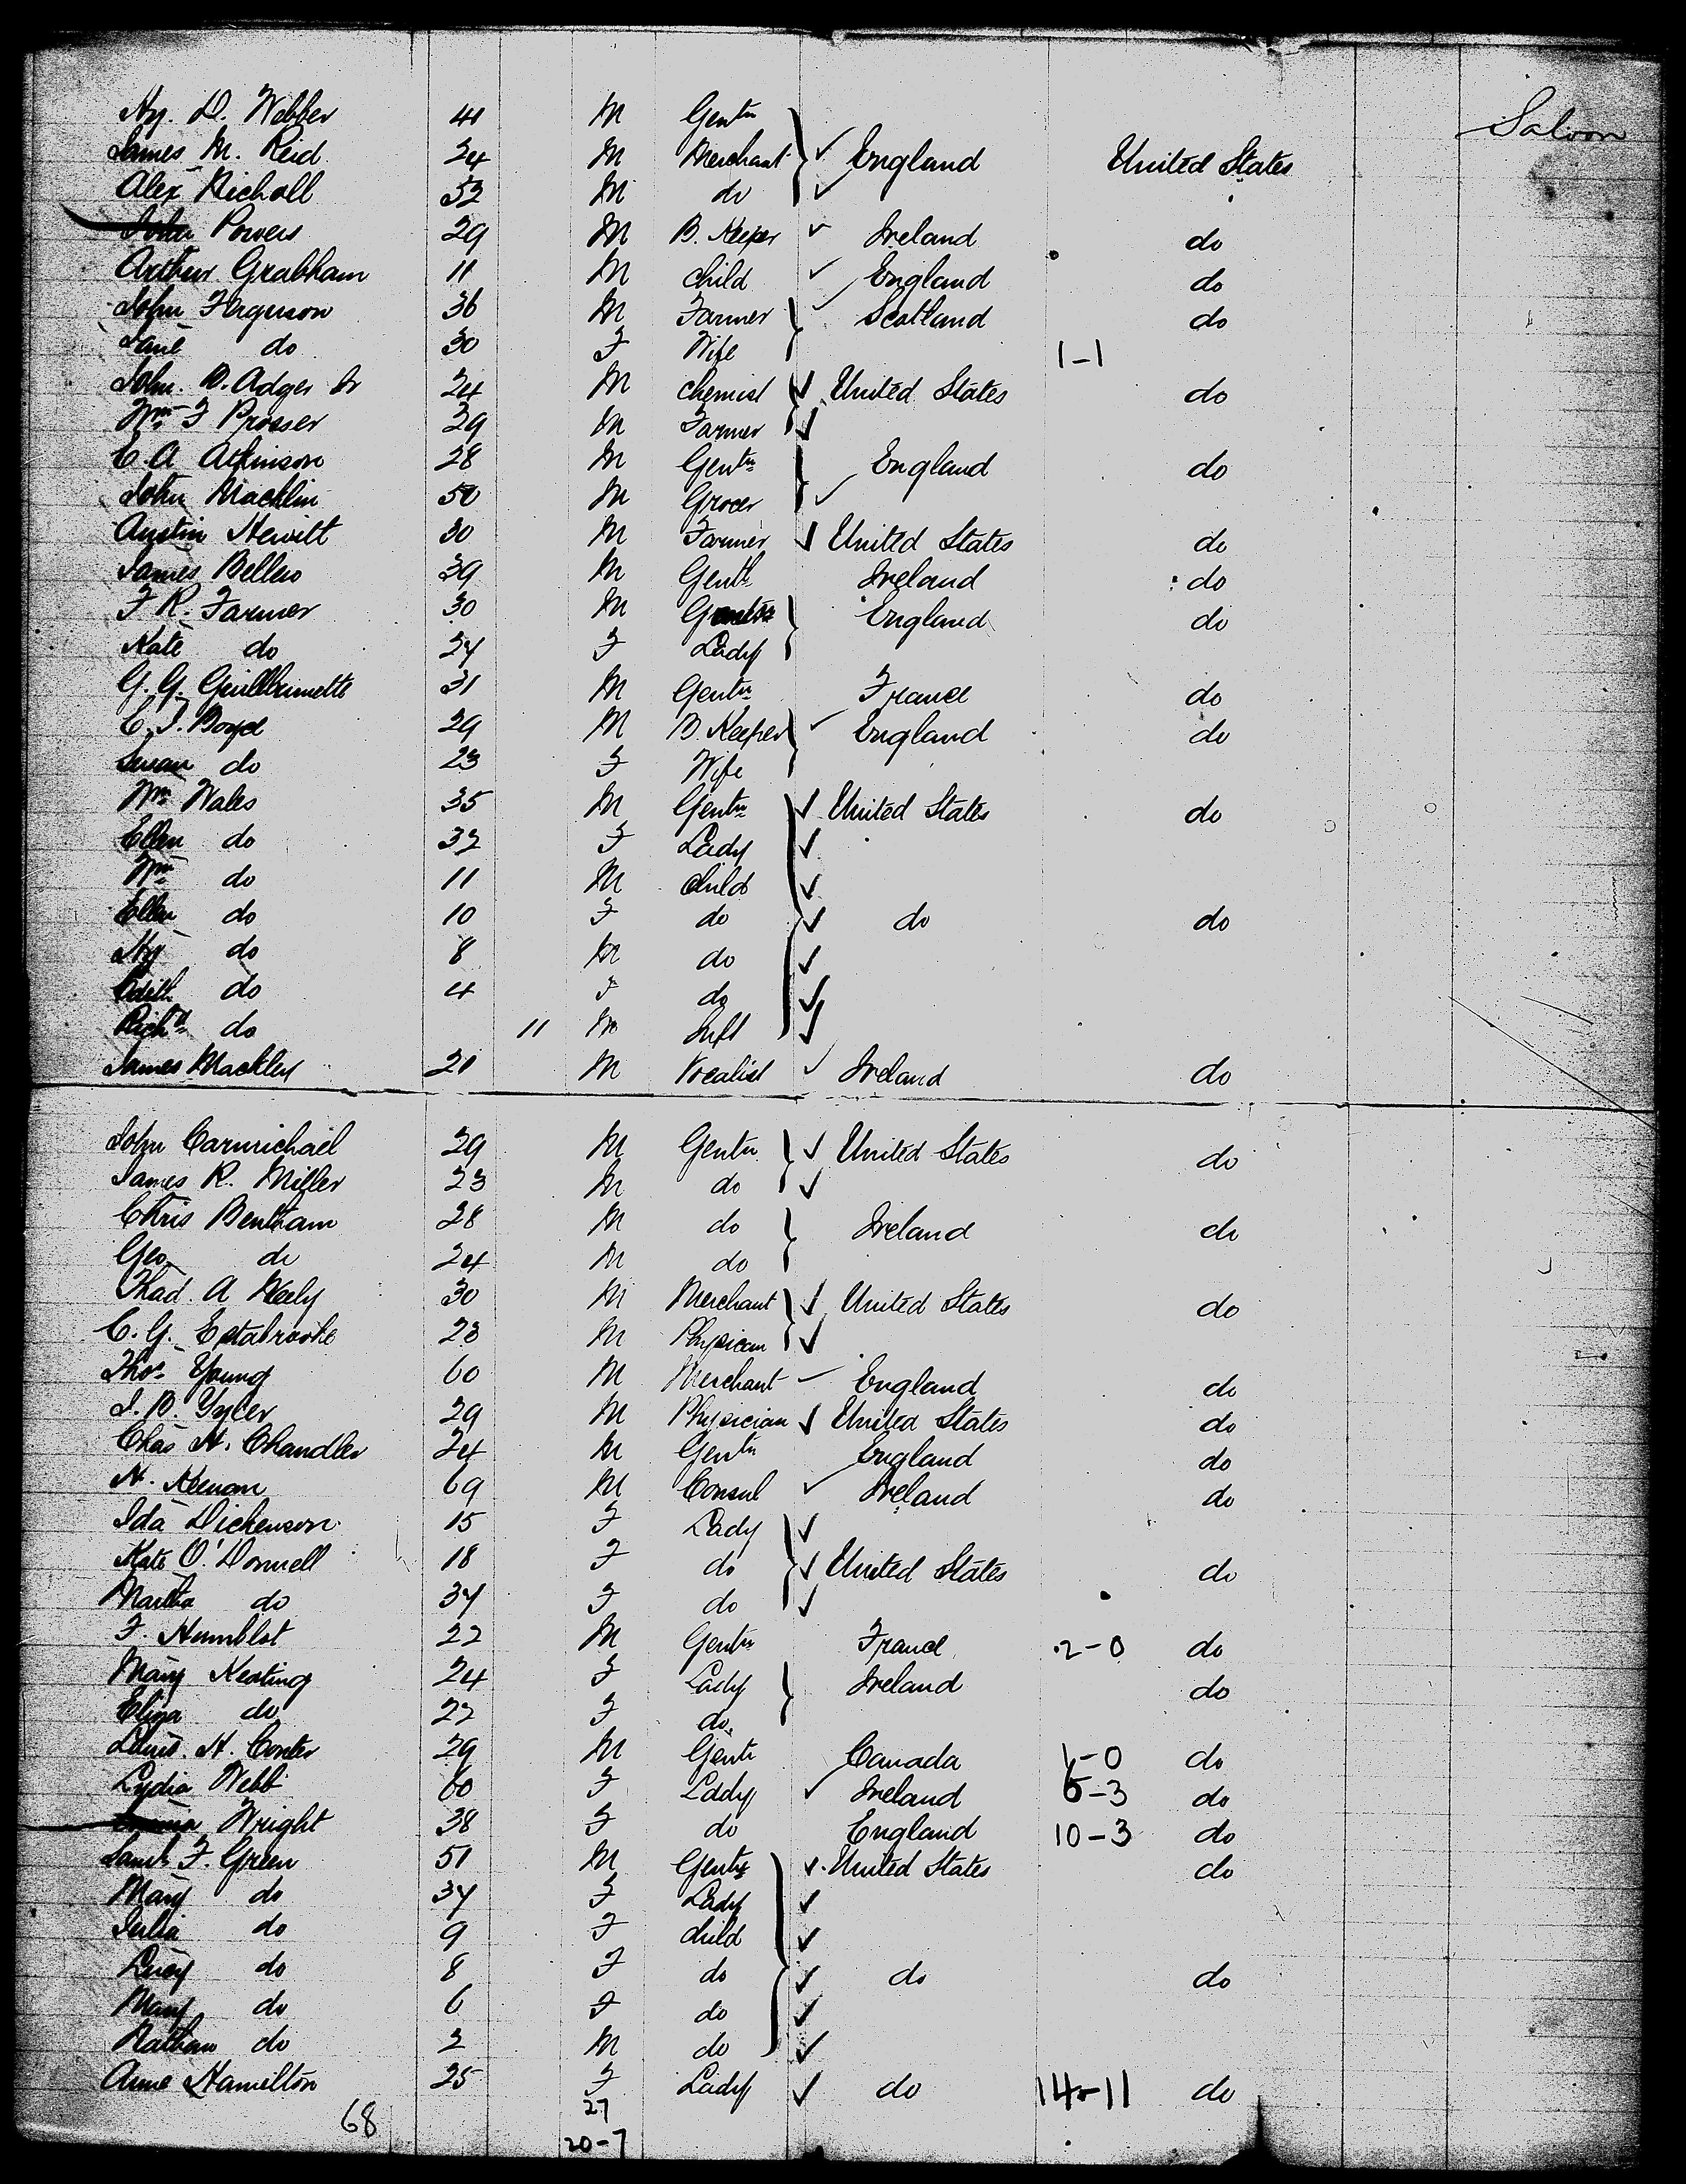 Saloon
Hy. D. Webber 41 M Gentn
James M. Reid 24 M Merchant England United States
Alex Nicholl 52 M do
John Powers 29 M B. Keeper Ireland do
Arthur Grabham 11 M Child England do
John Ferguson 36 M Farmer Scotland do
Jane do 30 F Wife 1-1
John. B. Adger Jr 24 M Chemist United States do
Wm F Prosser 39 M Farmer
C. A Atkinson 28 M Gentn England do
John Macklin 50 M Grocer
Austin Hewitt 30 M Farmer United States do
James Bellew 39 M Gentn Ireland do
F R. Farmer 30 M England do
Kate do 24 F Lady
G. G. 31 M Gentn France do
C. J. Boyd 29 M B Keeper England do
Susan do 23 F Wife
Wm Wales 35 M Gentn United States do
Ellen do 32 F Lady
Wm do 11 M Child
Ellen do 10 F do do do
Hy do 8 M do
Edith do 4 F do
Richd do 11 M Inft
James Mackley 21 M Vocalist Ireland do
John Carmichael 29 M Gentn United States do
James R. Miller 23 M do
Chris Bentham 28 M do Ireland do
Geo do 24 M do
Thad. A Neely 30 M Merchant United States do
C. G. Estabrooke 23 M Physician
Thos Young 60 M Merchant England do
29 M Physician United States do
Chas H. Chandler 24 M Gentn England do
N. Keenan 69 M Consul Ireland do
Ida Dickenson 15 F Lady
Kate O'Donnell 18 F do United States do
Martha do 34 F do
F. Humblot 22 M Gentn France 2-0 do
Mary Keating 24 F Lady Ireland do
Eliza do 22 F do
Louis. H. 29 M Gentn Canada 1-0 do
Lydia Webb 60 F Lady Ireland 6-3 do
Wright 38 F do England 10-3 do
Saml F. Green 51 M Gentn United States do
Mary do 34 F Lady
Julia do 9 F Child
Lucy do 8 F do do do
Mary do 6 F do
Nathan do 2 M do
Anne Hamilton 25 F Lady do 14-11 do
68 27
20-7